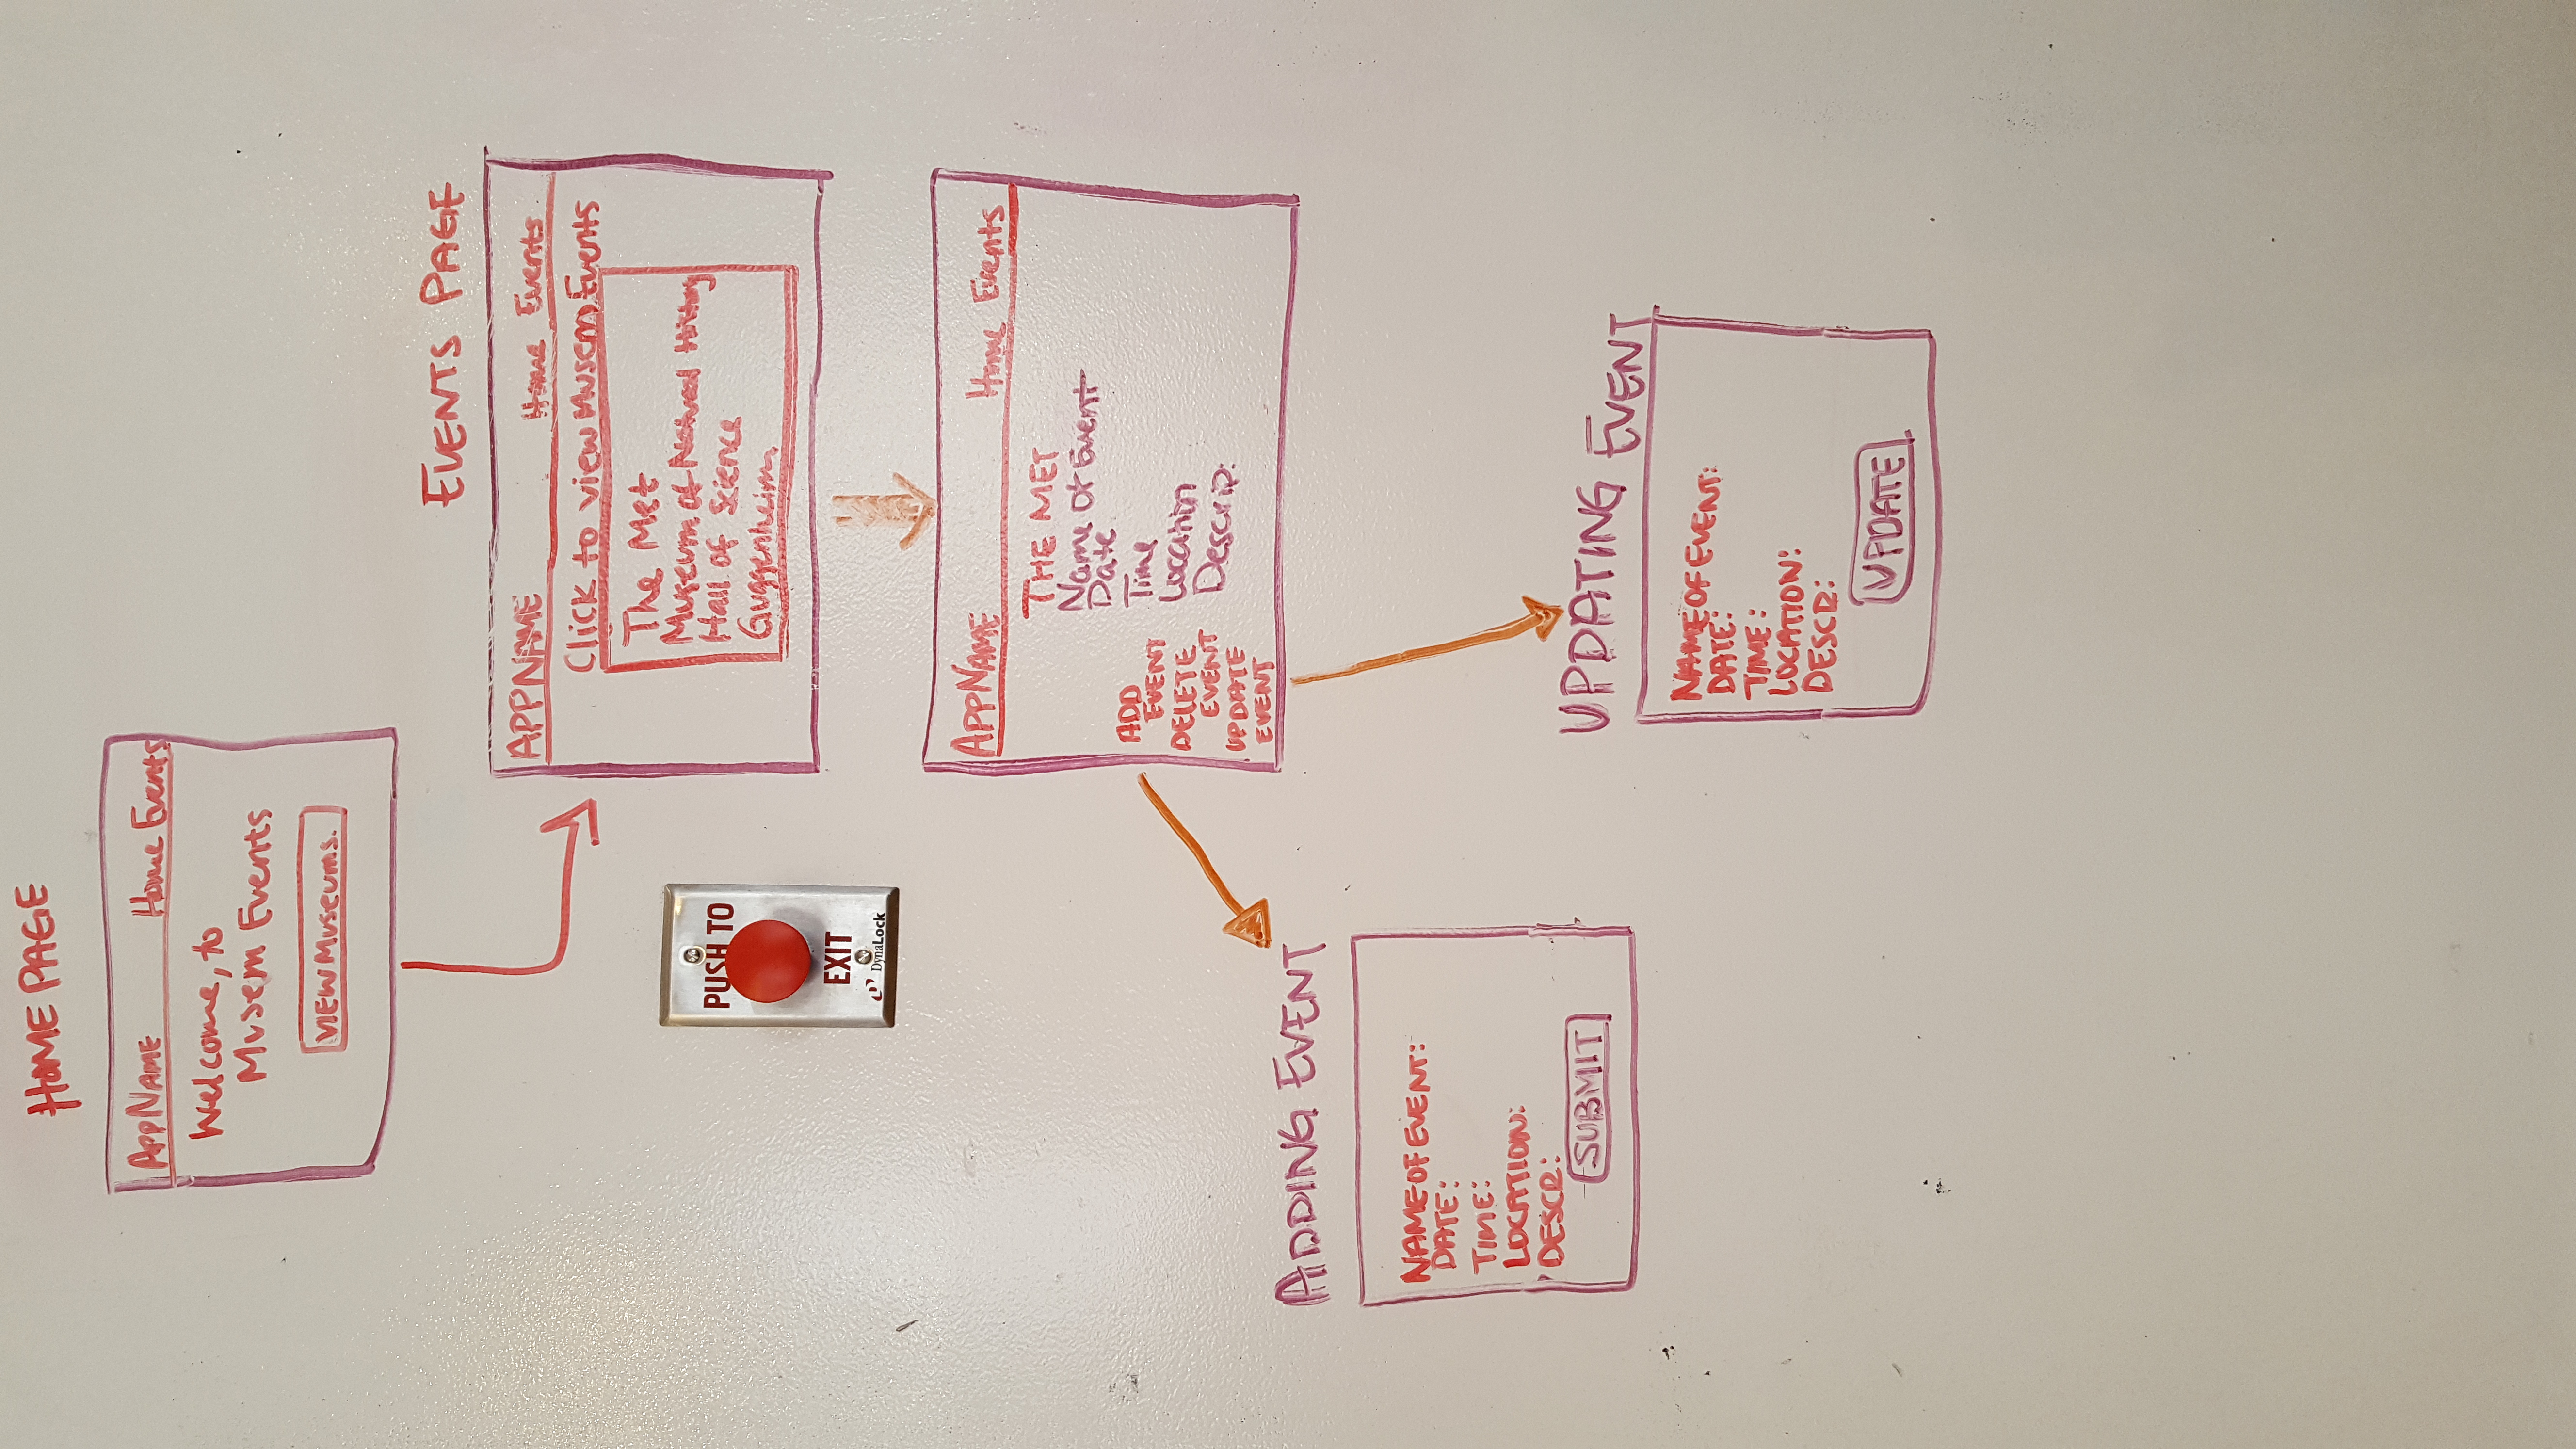 HOME PAGE
APPNAME Home Events
Welcome, to
Musem Events
VIEW Museums.
EVENTS PAGE
APPNAME Home Events
Click to view Musem Events
The Met
Museum of Natural History
Hall of Science
Guggenheim
PUSH TO
EXIT
DynaLock
APPNAME Home Events
THE MET
Name Of Event
Date
Time
Location
Descrip:
ADD
EVENT
DELETE
EVENT
UPDATE
EVENT
ADDING EVENT
NAME OF EVENT:
DATE:
TIME:
LOCATION:
DESCR:
SUBMIT
UPDATING EVENT
NAME OF EVENT:
DATE:
TIME:
LOCATION:
DESCR:
UPDATE